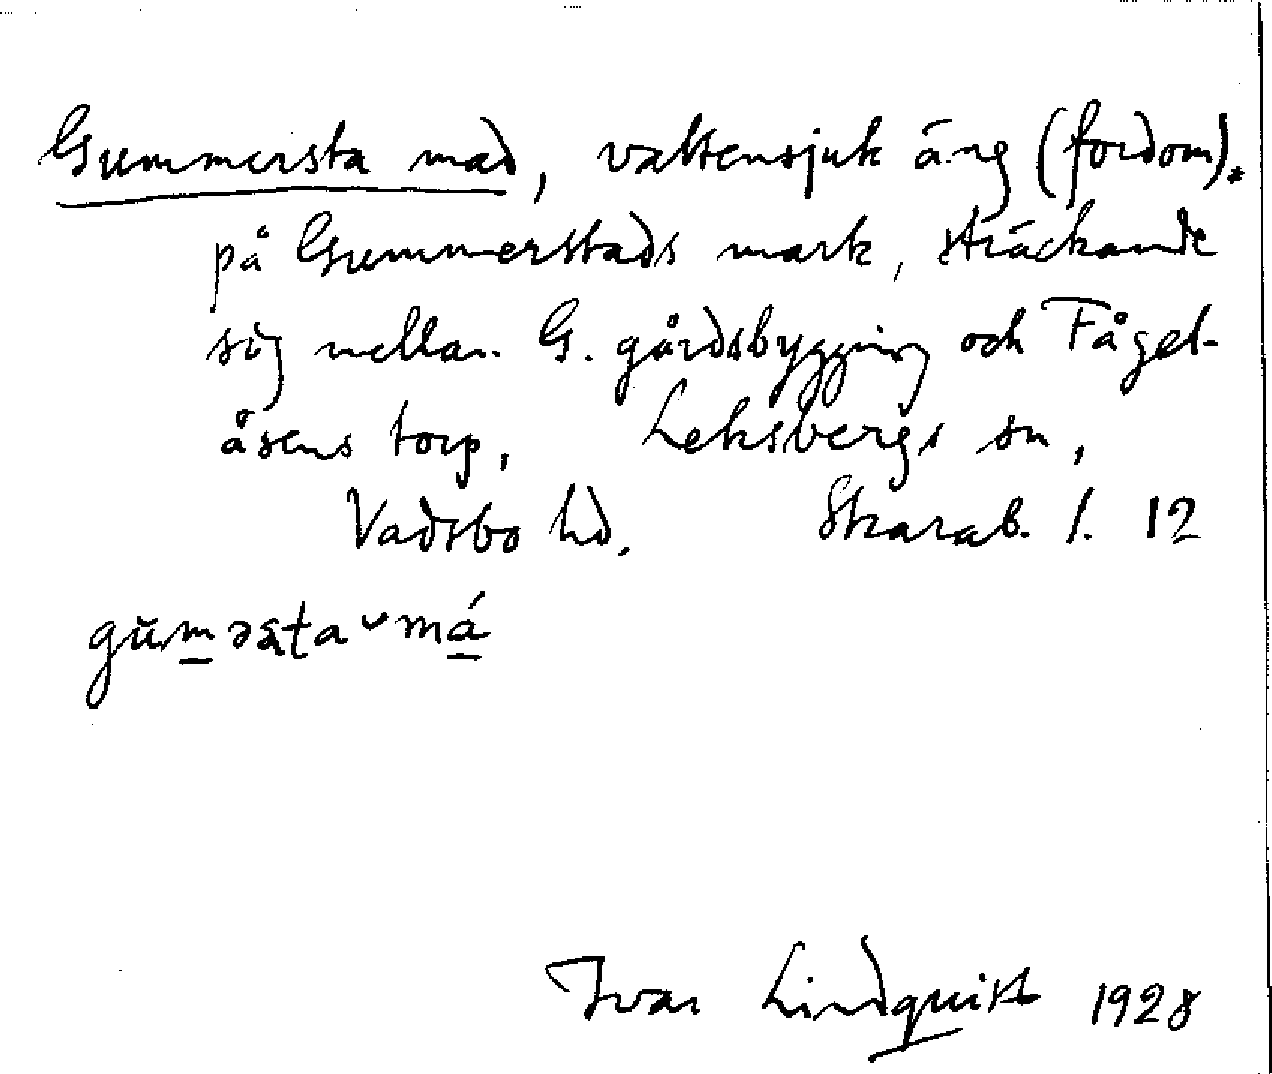 Gummersta mad, vattensjuk äng (fordom).*
på Gummerstads mark, sträckande
sig mellan G. gårdsbyggning och Fågel-
åsens torp, Leksbergs sn,
Vadsbo hd. Skarab. l. 12
gŭm̲əsta ˘ má̲
Ivar Lindquist 1928